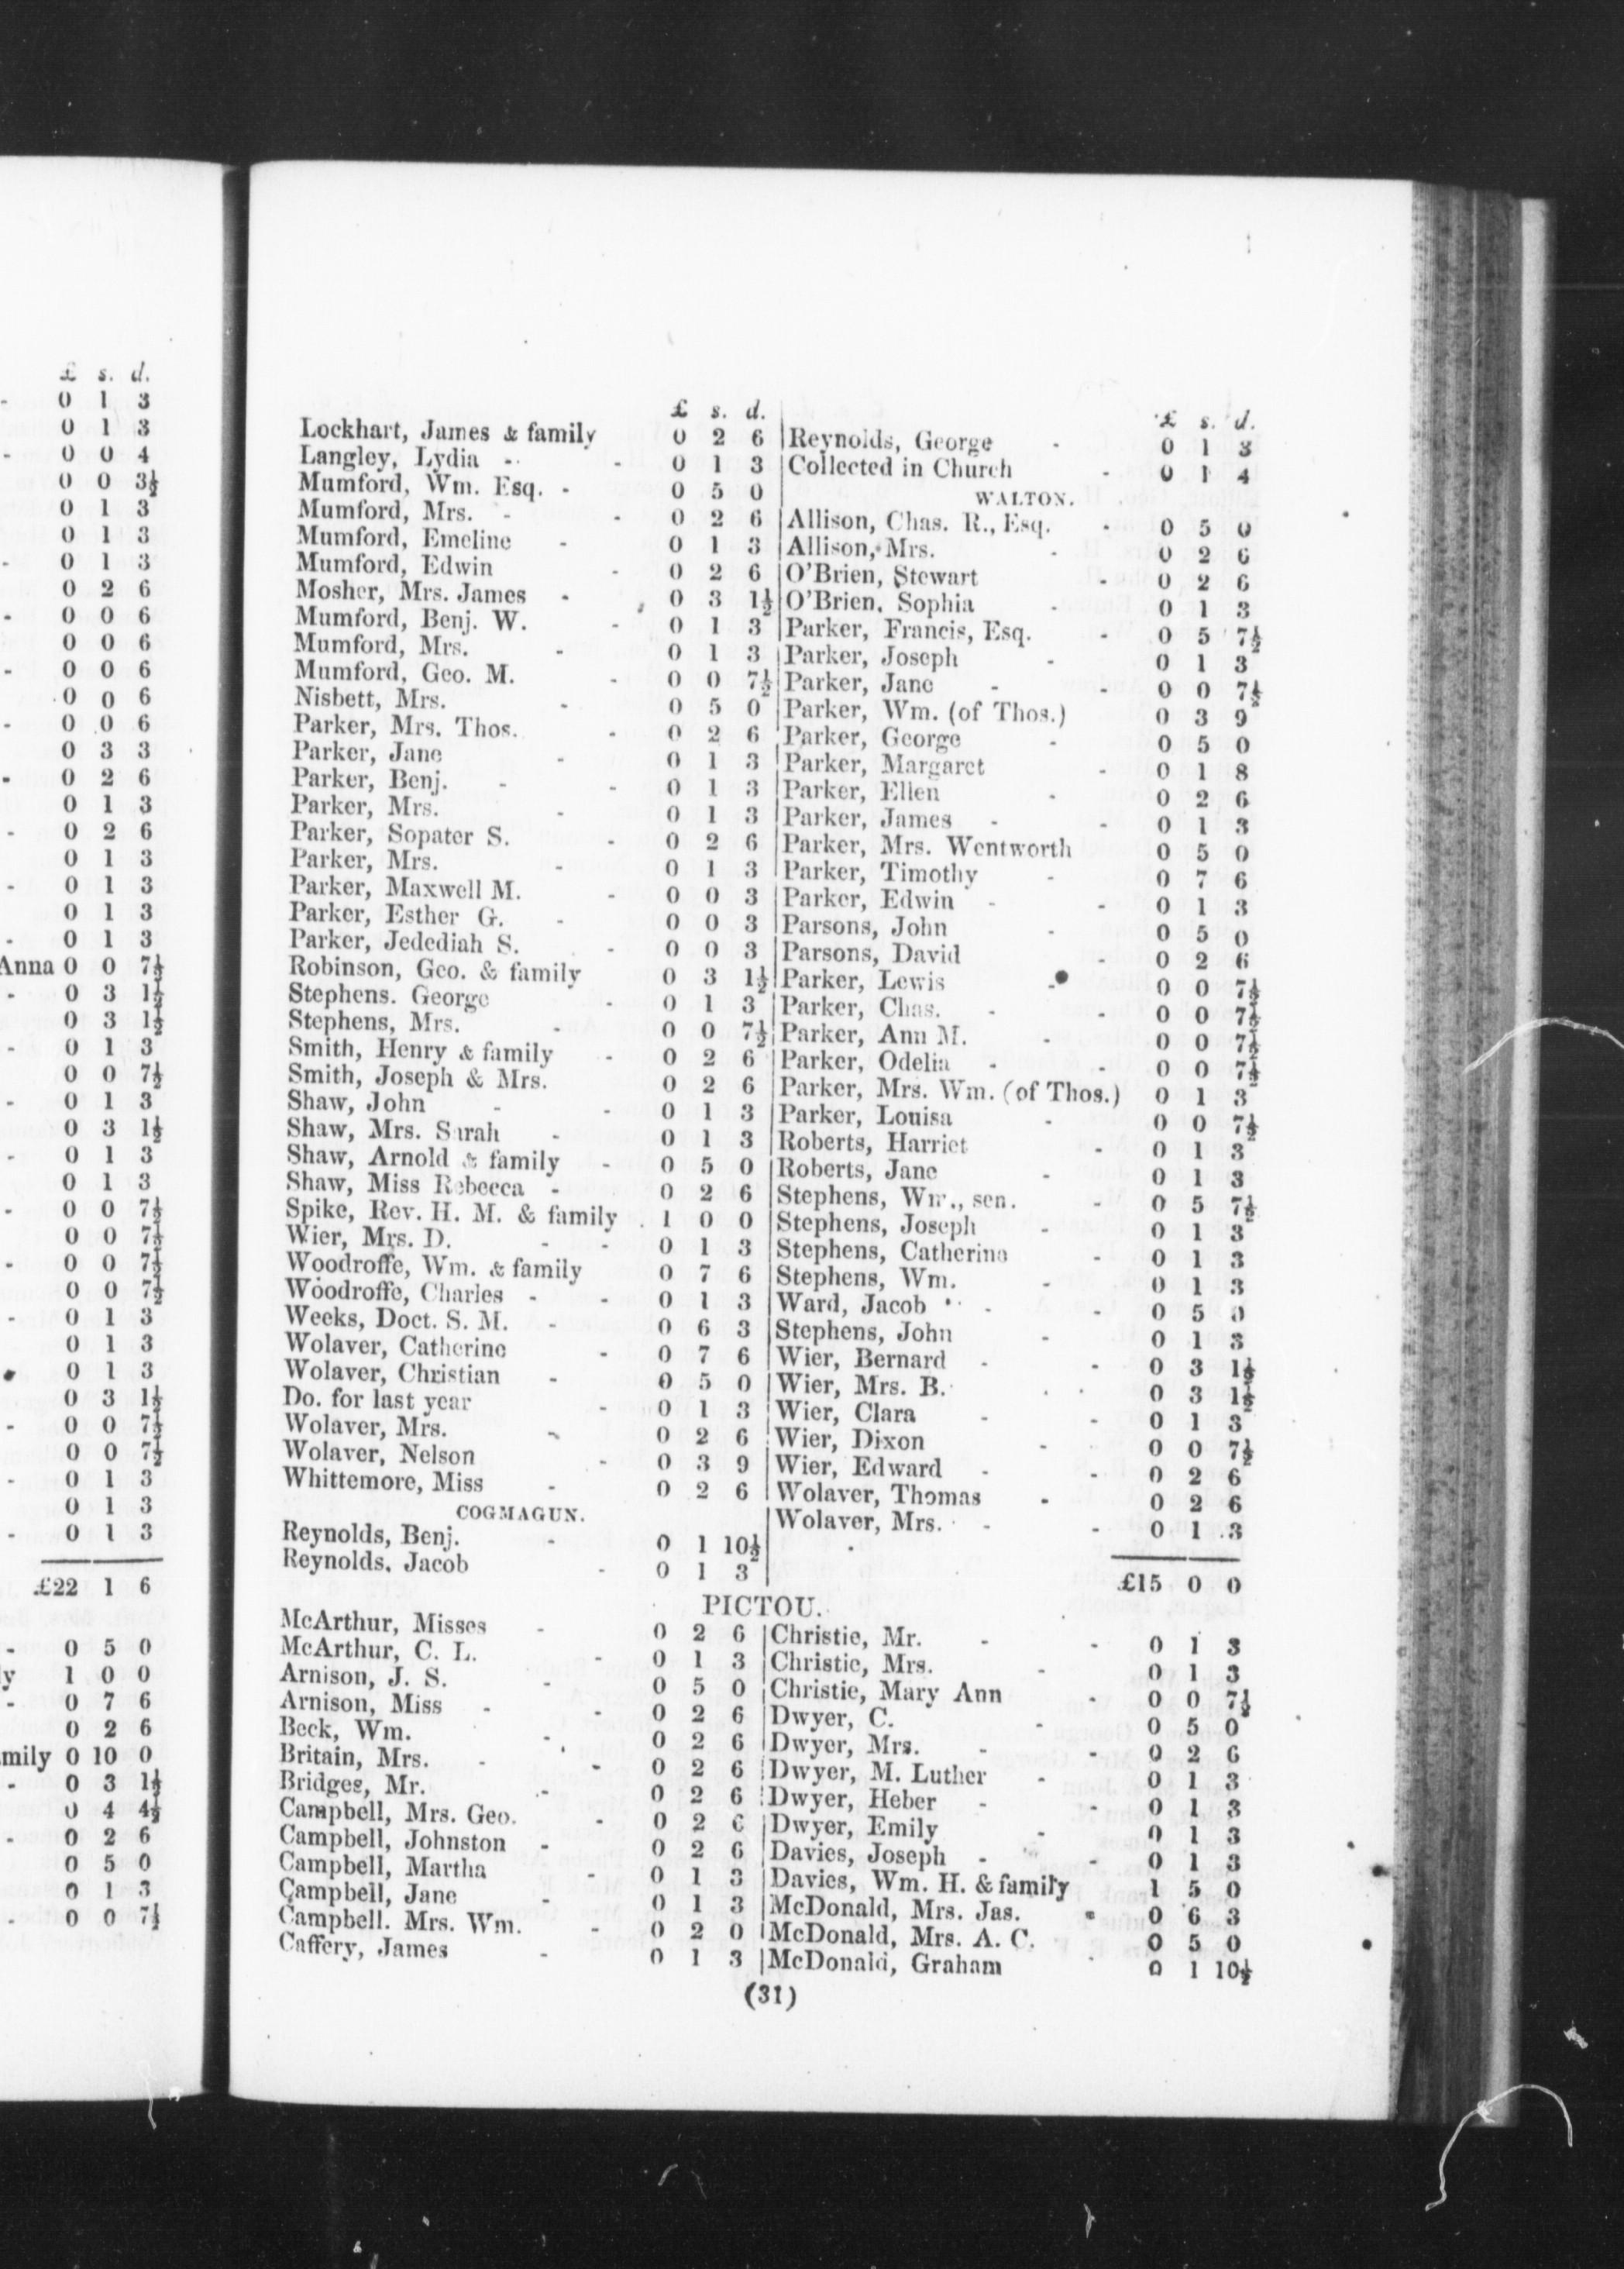 £ s. d.
0 1 3
0 1 3
0 0 4
0 0 3½
0 1 3
0 1 3
0 1 3
0 2 6
0 0 6
0 0 6
0 0 6
0 0 6
0 0 6
0 3 3
0 2 6
0 1 3
0 2 6
0 1 3
0 1 3
0 1 3
0 1 3
Anna 0 0 7½
0 3 1½
0 3 1½
0 1 3
0 0 7½
0 1 3
0 3 1½
0 1 3
0 1 3
0 0 7½
0 0 7½
0 0 7½
0 0 7½
0 1 3
0 1 3
0 1 3
0 3 1½
0 0 7½
0 0 7½
0 1 3
0 1 3
0 1 3
£22 1 6
0 5 0
y 1 0 0
0 7 6
0 2 6
mily 0 10 0
0 3 1½
0 4 4½
0 2 6
0 5 0
0 1 3
0 0 7½
£ s. d.
Lockhart, James & family 0 2 6
Langley, Lydia - - 0 1 3
Mumford, Wm. Esq. - 0 5 0
Mumford, Mrs. - - 0 2 6
Mumford, Emeline - 0 1 3
Mumford, Edwin - 0 2 6
Mosher, Mrs. James - 0 3 1½
Mumford, Benj. W. - 0 1 3
Mumford, Mrs. - 0 1 3
Mumford, Geo. M. - 0 0 7½
Nisbett, Mrs. - 0 5 0
Parker, Mrs. Thos. - 0 2 6
Parker, Jane - 0 1 3
Parker, Benj. - - 0 1 3
Parker, Mrs. - 0 1 3
Parker, Sopater S. - 0 2 6
Parker, Mrs. - 0 1 3
Parker, Maxwell M. - 0 0 3
Parker, Esther G. - 0 0 3
Parker, Jedediah S. - 0 0 3
Robinson, Geo. & family 0 3 1½
Stephens. George - 0 1 3
Stephens, Mrs. - 0 0 7½
Smith, Henry & family - 0 2 6
Smith, Joseph & Mrs. 0 2 6
Shaw, John - - 0 1 3
Shaw, Mrs. Sarah - 0 1 3
Shaw, Arnold & family - 0 5 0
Shaw, Miss Rebecca - 0 2 6
Spike, Rev. H. M. & family . 1 0 0
Wier, Mrs. D. - - 0 1 3
Woodroffe, Wm. & family 0 7 6
Woodroffe, Charles - - 0 1 3
Weeks, Doct. S. M. - 0 6 3
Wolaver, Catherine - 0 7 6
Wolaver, Christian - 0 5 0
Do. for last year - 0 1 3
Wolaver, Mrs. - 0 2 6
Wolaver, Nelson - 0 3 9
Whittemore, Miss - 0 2 6
COGMAGUN.
Reynolds, Benj. - 0 1 10½
Reynolds. Jacob - 0 1 3
£ s. d.
Reynolds, George - 0 1 3
Collected in Church - 0 1 4
WALTON.
Allison, Chas. R., Esq. - 0 5 0
Allison, Mrs. - 0 2 6
O'Brien, Stewart - 0 2 6
O'Brien. Sophia - 0 1 3
Parker, Francis, Esq. - 0 5 7½
Parker, Joseph - 0 1 3
Parker, Jane - - 0 0 7½
Parker, Wm. (of Thos.) 0 3 9
Parker, George - 0 5 0
Parker, Margaret - 0 1 8
Parker, Ellen - 0 2 6
Parker, James - - 0 1 3
Parker, Mrs. Wentworth 0 5 0
Parker, Timothy - 0 7 6
Parker, Edwin - - 0 1 3
Parsons, John - 0 5 0
Parsons, David - 0 2 6
Parker, Lewis - 0 0 7½
Parker, Chas. - - 0 0 7½
Parker, Ann M. - 0 0 7½
Parker, Odelia - - 0 0 7½
Parker, Mrs. Wm. (of Thos.) 0 1 3
Parker, Louisa - 0 0 7½
Roberts, Harriet - 0 1 3
Roberts, Jane - 0 1 3
Stephens, Wm., sen. - 0 5 7½
Stephens, Joseph - 0 1 3
Stephens, Catherine - 0 1 3
Stephens, Wm. - 0 1 3
Ward, Jacob - - 0 5 0
Stephens, John - 0 1 3
Wier, Bernard - - 0 3 1½
Wier, Mrs. B. 0 3 1½
Wier, Clara - - 0 1 3
Wier, Dixon - 0 0 7½
Wier, Edward - - 0 2 6
Wolaver, Thomas - 0 2 6
Wolaver, Mrs. - - 0 1 3
£15 0 0
PICTOU.
McArthur, Misses - 0 2 6
McArthur, C. L. - 0 1 3
Arnison, J. S. - 0 5 0
Arnison, Miss - - 0 2 6
Beck, Wm. - 0 2 6
Britain, Mrs. - - 0 2 6
Bridges, Mr. - 0 2 6
Campbell, Mrs. Geo. - 0 2 6
Campbell, Johnston - 0 2 6
Campbell, Martha - 0 1 3
Campbell, Jane - 0 1 3
Campbell. Mrs. Wm. - 0 2 0
Caffery, James - 0 1 3
Christie, Mr. - - 0 1 3
Christie, Mrs. - 0 1 3
Christie, Mary Ann - 0 0 7½
Dwyer, C. - 0 5 0
Dwyer, Mrs. - - 0 2 6
Dwyer, M. Luther - 0 1 3
Dwyer, Heber - - 0 1 3
Dwyer, Emily - 0 1 3
Davies, Joseph - - 0 1 3
Davies, Wm. H. & family 1 5 0
McDonald, Mrs. Jas. - 0 6 3
McDonald, Mrs. A. C. 0 5 0
McDonald, Graham 0 1 10½
(31)